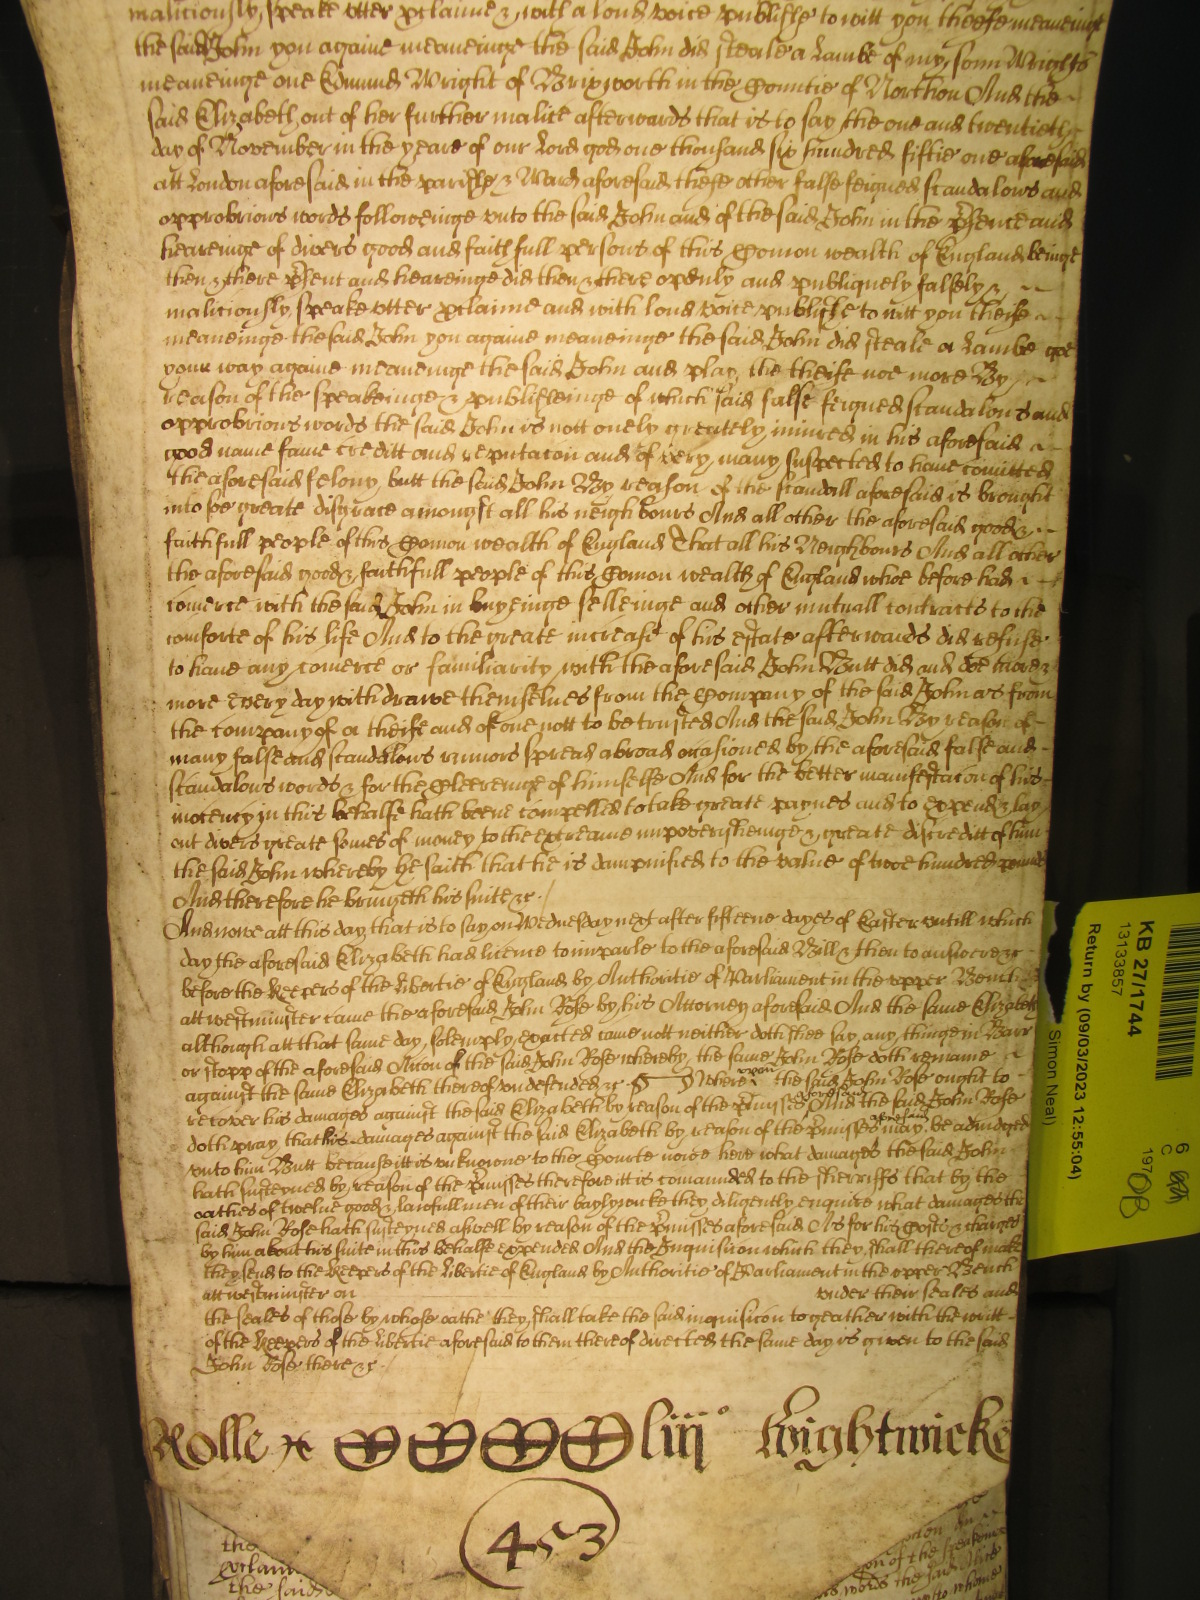 maliciously speake utter pclaime & with a loud voice publishe to witt you theefe meaneinge
the said John you againe meaneinge the said John did steale a Lambe of my sonn Wrights
meaneinge one Edmund Wright of Brixworth in the Countie of Northton And the
said Elizabeth out of her further malice afterwards that is to say the one and twentieth
day of November in the yeare of our Lord god one thousand six hundred fiftie one aforesaid
att London aforesaid in the parishe & Ward aforesaid these other false feigned scandalous and
opprobrious words followeinge unto the said John and of the said John in the psence and
heareinge of divers good and faithfull persons of this Comon wealth of England beinge
then & there psent and heareinge did then & there openly and publiquely falsely &
maliciously speake utter pclaime and with loud voice publishe to witt you theife
meaneinge the said John you againe meaneinge the said John did steale a Lambe goe
your way againe meaneinge the said John and play the theife noe more By
reason of the speakeinge & publisheinge of which said false feigned scandalous and
opprobrious words the said John is nott onely greately injured in his aforesaid
good name fame creditt and reputacon and of very many suspected to have comitted
the aforesaid felony butt the said John By reason of the scandall aforesaid is brought
into soe greate disgrace amongst all his neighbours And all other the aforesaid good &
faithfull people of this Comon wealth of England That all his Neighbours And all other
the aforesaid good & faithfull people of this Comon wealth of England whoe before had
comerce with the said John in buyeinge selleinge and other mutuall contracts to the
comforte of his life And to the greate increase of his estate afterwards did refuse
to have any comerce or familiarity with the aforesaid John Butt did and doe more &
more every day withdrawe themselves from the Company of the said John as from
the company of a theife and of one nott to be trusted And the said John By reason of
many false and scandalous rumors spread abroad occasioned by the aforesaid false and
scandalous words & for the Cleereinge of himselfe And for the better manifestacon of his
inocency in this behalfe hath beene compelled to take greate paynes and to expend & lay
out divers greate somes of money to the extreame impoverisheinge & greate discreditt of him
the said John whereby he saith that he is dampnified to the value of twoe hundred pounds
And therefore he bringeth his suite &c.
And nowe att this day that is to say on Wednesday next after fifteene dayes of Easter untill which
day the aforesaid Elizabeth had licence to imparle to the aforesaid Bill & then to answere &c
before the Keepers of the libertie of England by Authoritie of Parliament in the upper Bench
att westminster came the aforesaid John Rose by his Attorney aforesaid And the same Elizabeth
although att that same day solemply exacted came nott neither doth shee say any thinge in Barr
or stopp of the aforesaid Accon of the said John Rose whereby the same John Rose doth remaine
against the same Elizabeth thereof undefended &c Where upon the said John Rose ought to
recover his damages against the said Elizabeth by reason of the pmisses aforesaid And the said John Rose
doth pray that his damages against the said Elizabeth by reason of the pmisses aforesaid may be adjudged
unto him Butt because itt is unknowne to the Courte nowe here what damages the said John
hath susteyned by reason of the pmisses therefore itt is comanded to the sherriffs that by the
oathes of twelve good & lawfull men of their baylywicke they diligently enquire what damages the
said John Rose hath susteyned aswell by reason of the pmisses aforesaid As for his Costs & charges
by him about his suite in this behalfe expended And the Inquisicion which they shall thereof make
they send to the Keepers of the libertie of England by Authoritie of Parliament in the upper Bench
att westminster on under their seales and
the seales of those by whose oathe they shall take the said inquisicon togeather with the writt
of the Keepers of the libertie aforesaid to them thereof directed the same day is given to the said
John Rose there &c.
Rolle liij Wightwicke
453
KB 27/1744
13133857
Return by (09/03/2023 12:55:04)
Simon Neal)
6
C
197